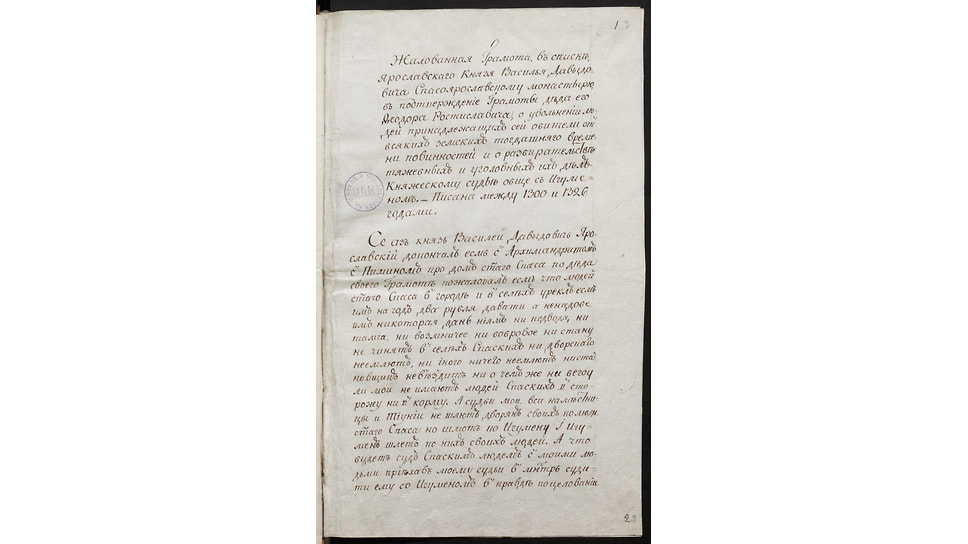 1 2
Жалованная Грамота, въ спискѣ,
Ярославскаго Князя Василья Давыдо-
вича Спасоярославскому монастырю
въ подтверждение Грамоты дѣда его
Ѳеодора Ростиславича, о увольненіи лю-
дей принадлежащихъ сей обители отъ
всякихъ земскихъ тогдашняго време
ни повинностей и о разбирательствѣ
тяжебныхъ и уголовныхъ ихъ дѣлъ
Княжескому судьѣ обще съ Игуме-
номъ. — Писана между 1300 и 1326
годами.
Се азъ князь Василей Давыдовичь Яро-
славскій докончалъ есмь с Архимандритомъ
с Пиминомъ про домъ стаго Спаса по дѣда
своего Грамотѣ пожаловалъ есмь что людей
стаго Спаса в городѣ и в селѣхъ уреклъ есмь
имъ на годъ два рубля давати а ненадобе
имъ никоторая дань ніямъ ни подвода, ни
тамга, ни возминчее ни бобровое ни стану
не чинятъ в селѣхъ Спаскихъ ни дворскаго
неемлютъ, ни іного ничего неемлют
невъѣздитъ ни о чемъ же ни
ли мои не имаютъ людей Спаскихъ в сто
рожу ни в корму. А судьи мои вси намѣсни
цы и Тіуніи не шлютъ дворянъ своихъ по люди
стаго Спаса но шлютъ по Игумену І Игу-
менъ шлетъ по нихъ своихъ людей. А что
будетъ судъ Спаскимъ людемъ с моими лю
дьми пріѣхавъ моему судьи в мнтрь суди-
ти ему со Игуменомъ в правдѣ по целованія
20